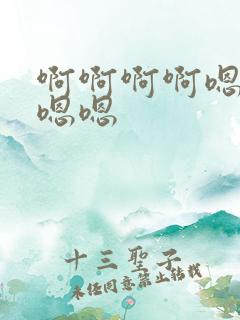 啊啊啊啊嗯
嗯嗯
十三聖子
未经同意禁止转载